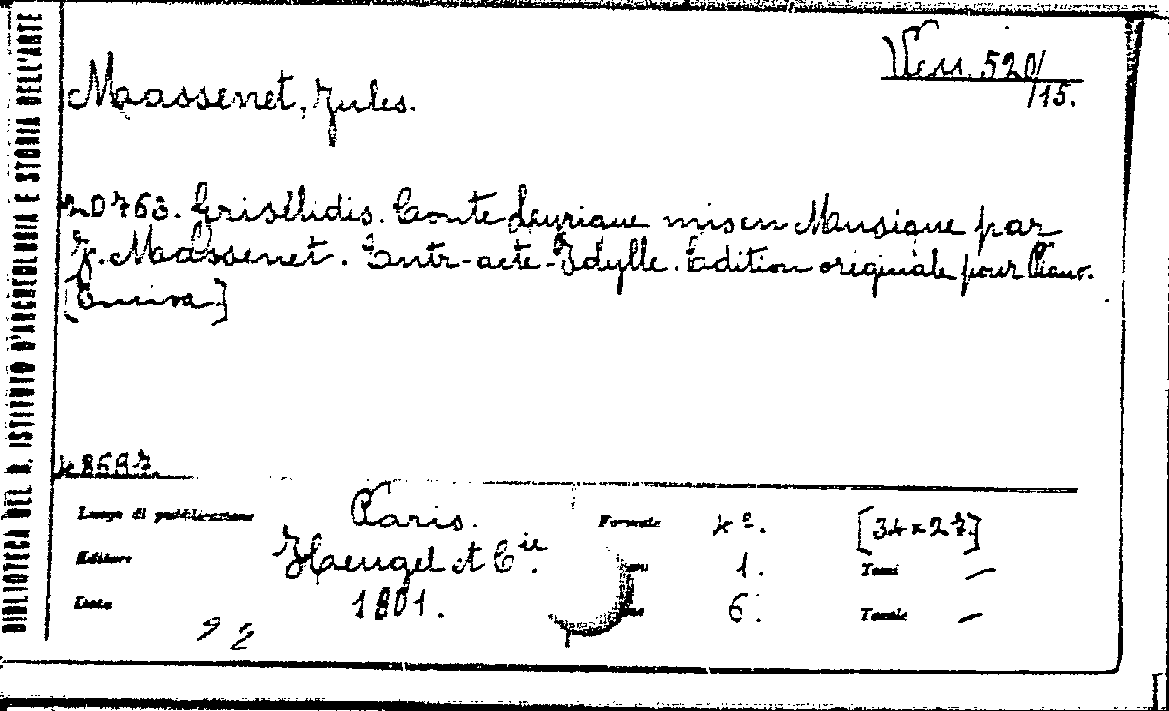 BIBLIOTECA DEL R. ISTITUTO D'ARCHEOLOGIA E STORIA DELL'ARTE
Ven. 520/
/15.
Maassenet, Jules.
20763. Grisélidis. Conte Leyrique mis en Musique par
J. Maassenet. Entr-acte-Idylle. Edition originale pour Piano.
4869
Luogo di pubblicazione Paris. Formato 4º. [34×27]
Editore Heugel et Cie. 1. Tomi —
Data 1901. 6. Tavole —
92